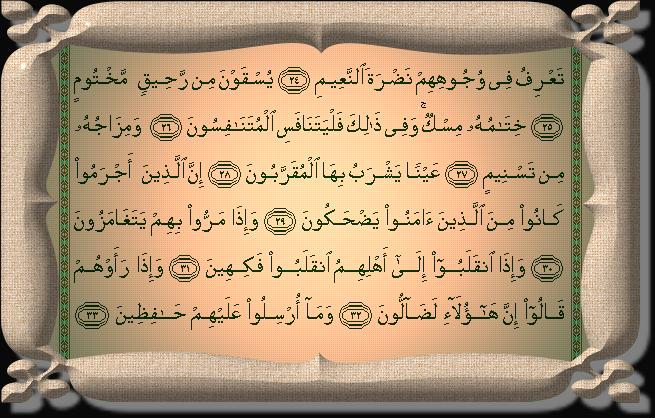 تَعْرِفُ فِى وُجُوهِهِمْ نَضْرَةَ ٱلنَّعِيمِ ٢٤ يُسْقَوْنَ مِن رَّحِيقٍ مَّخْتُومٍ
٢٥ خِتَـٰمُهُۥ مِسْكٌ ۚ وَفِى ذَٰلِكَ فَلْيَتَنَافَسِ ٱلْمُتَنَـٰفِسُونَ ٢٦ وَمِزَاجُهُۥ
مِن تَسْنِيمٍ ٢٧ عَيْنًا يَشْرَبُ بِهَا ٱلْمُقَرَّبُونَ ٢٨ إِنَّ ٱلَّذِينَ أَجْرَمُوا۟
كَانُوا۟ مِنَ ٱلَّذِينَ ءَامَنُوا۟ يَضْحَكُونَ ٢٩ وَإِذَا مَرُّوا۟ بِهِمْ يَتَغَامَزُونَ
٣٠ وَإِذَا ٱنقَلَبُوٓا۟ إِلَىٰٓ أَهْلِهِمُ ٱنقَلَبُوا۟ فَكِهِينَ ٣١ وَإِذَا رَأَوْهُمْ
قَالُوٓا۟ إِنَّ هَـٰٓؤُلَآءِ لَضَآلُّونَ ٣٢ وَمَآ أُرْسِلُوا۟ عَلَيْهِمْ حَـٰفِظِينَ ٣٣